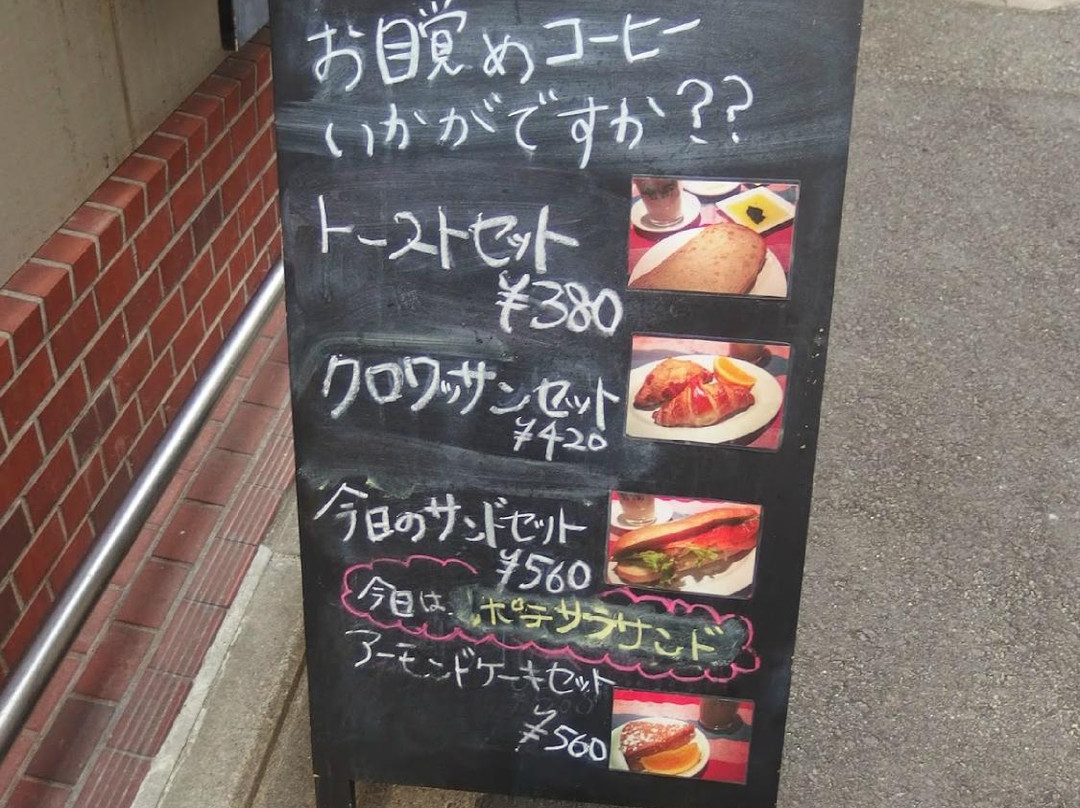 お目覚めコーヒー
いかがですか??
トーストセット
¥380
クロワッサンセット
¥420
今日のサンドセット
¥560
今日は、ポテサラサンド
アーモンドケーキセット
¥560